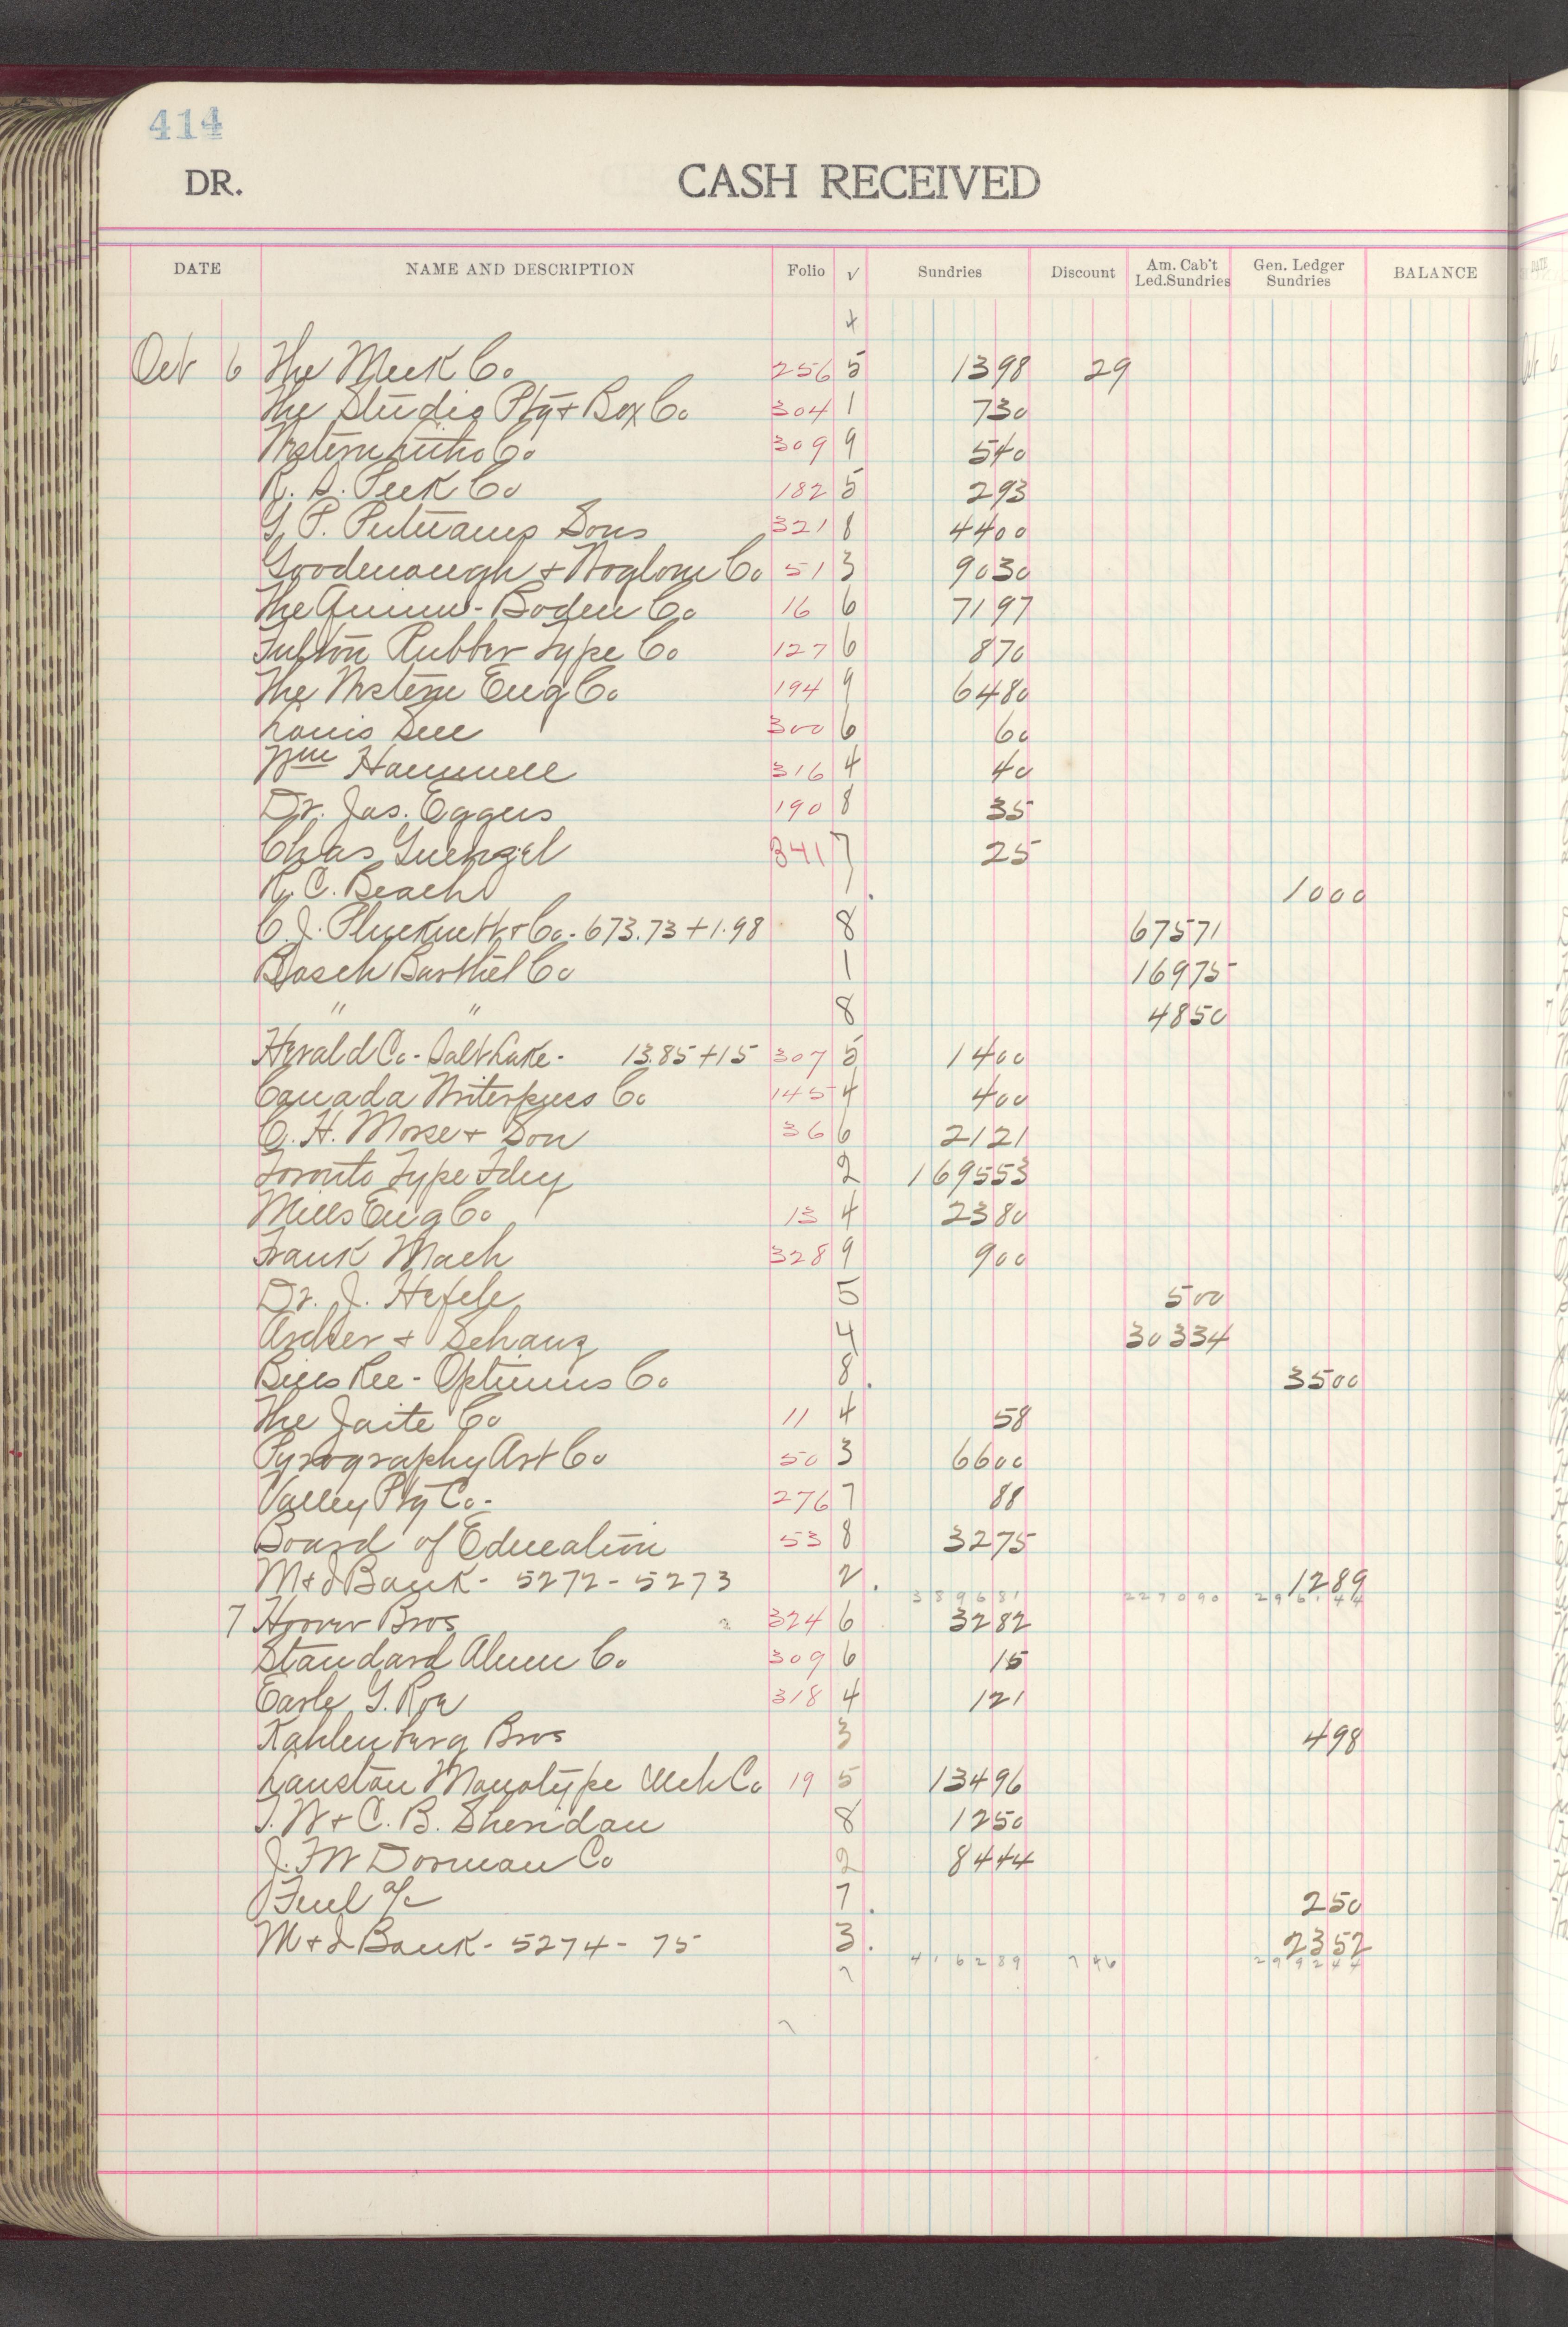 414
DR. CASH RECEIVED
DATE NAME AND DESCRIPTION Folio √ Sundries Discount Am. Cab't Led.Sundries Gen. Ledger Sundries BALANCE
4
Oct 6 The Meek Co 256 5 13 98 29
The Studio Ptg & Box Co 304 1 7 30
Western Litho Co 309 9 5 40
R. S. Peek Co 182 5 2 93
G. P. Putnams Sons 321 8 44 00
Goodenough & Woglom Co 51 3 90 30
The Quinn-Boden Co 16 6 71 97
Fulton Rubber Type Co 127 6 8 70
The Western Eng Co 194 9 64 80
Louis 300 6 60
Wm Hammell 316 4 40
Dr. Jas. Eggers 190 8 35
Chas Guenzel 341 7 25
R. C. Beach 1. 10 00
C. J. & Co. 673.73 + 1.98 8 675 71
Bosch Barthel Co 1 169 75
" " 8 48 50
Herald Co - Salt Lake - 13.85 + 15 307 5 14 00
Canada Writerpress Co 145 4 4 00
C. H. Morse & Son 36 6 21 21
Toronto Type Fdry 2 1695 53
Mills Eng Co 13 4 23 80
Frank Mach 328 9 9 00
Dr. J. Hefele 5 5 00
& Schanz 4 303 34
Bills Rec - Optimus Co 8. 35 00
The Jaite Co 11 4 58
Pyrography Art Co 50 3 66 00
Valley Ptg Co - 276 7 88
Board of Education 53 8 32 75
M & I Bank - 5272 - 5273 2. 12 89
3896 81 2270 90
7 Hoover Bros 324 6 32 82
Standard Alum Co 309 6 15
Earle G. Roe 318 4 1 21
Kahlenberg Bros 3 4 98
Lanston Monotype Mch Co 19 5 134 96
T. W & C. B. Sheridan 8 12 50
J. F W Dorman Co 2 84 44
Fuel a/c 7. 2 50
M & I Bank - 5274 - 75 3. 23 52
4162 89 7 46 2992 44
7